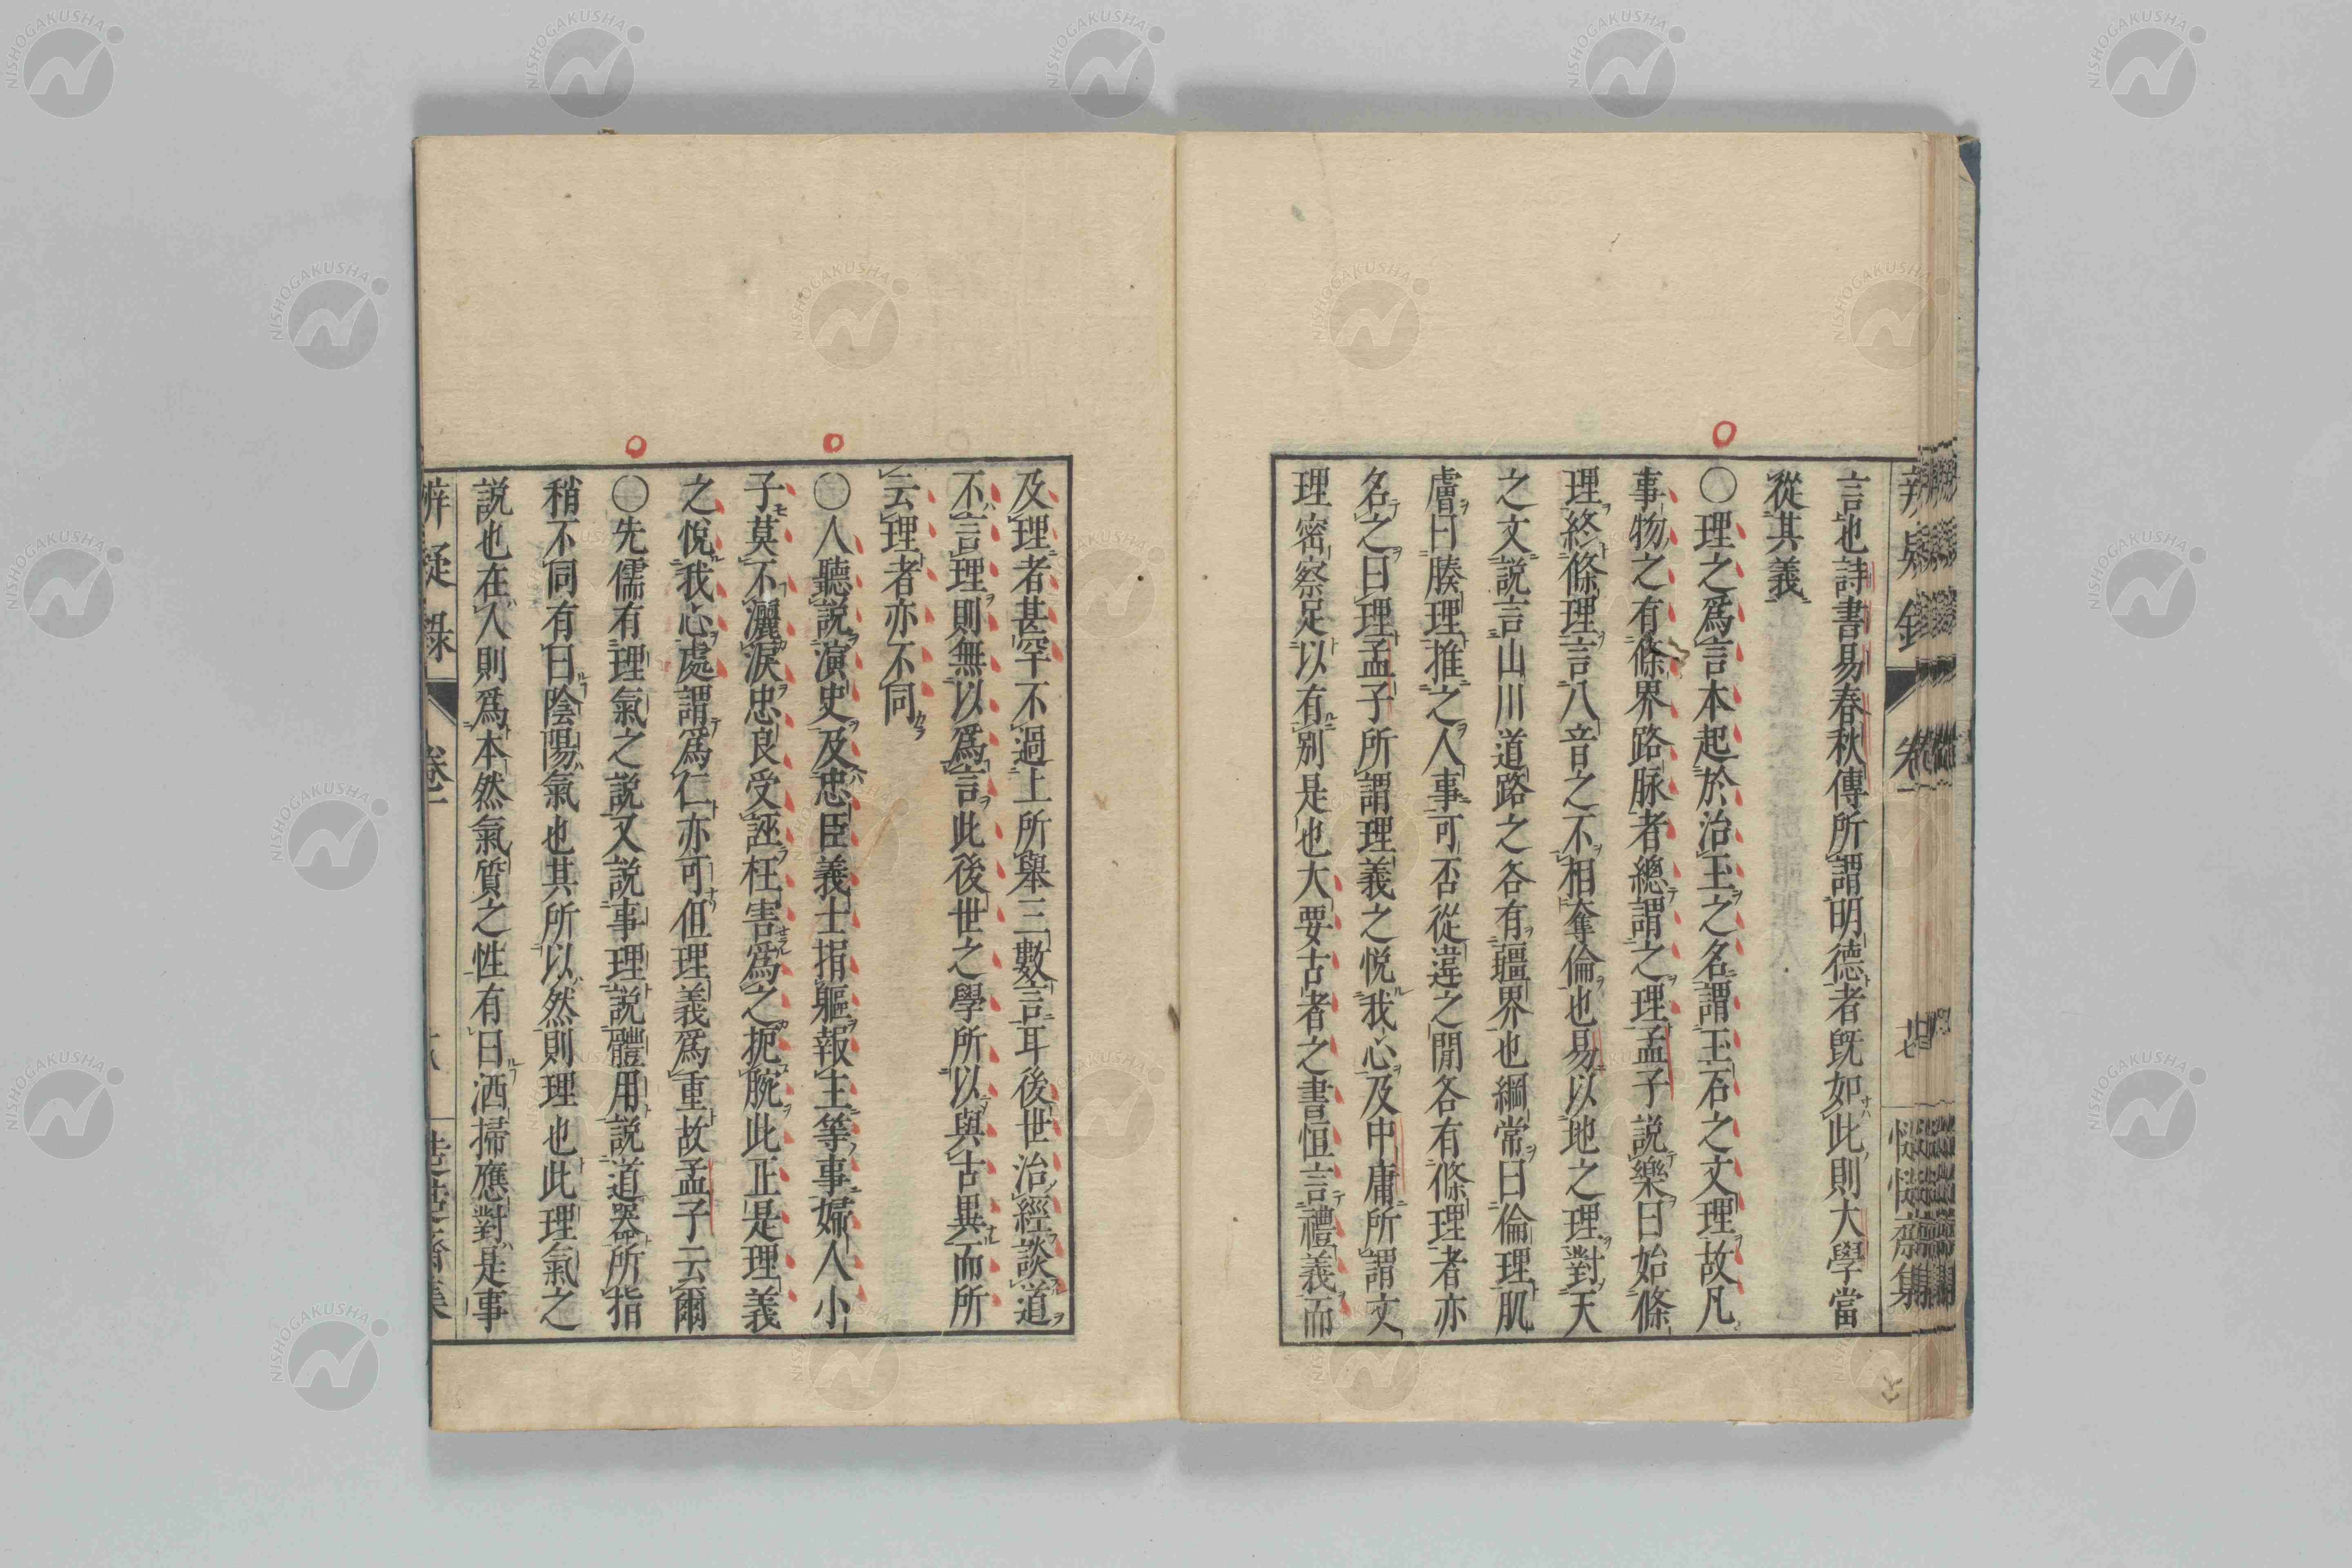 言也詩書易春秋傳所謂明德者旣如此則大學當
從其義
〇理之爲言本起於治玉之名謂玉石之文理故凡
事物之有條界路脉者總謂之理孟子說樂曰始條
理終條理言八音之不相奪倫也易以地之理對天
之文說言山川道路之各有疆界也綱常曰倫理肌
膚曰腠理推之人事可否從違之閒各有條理者亦
名之曰理孟子所謂理義之悅我心及中庸所謂文
理密察足以有別是也大要古者之書恒言禮義而
及理者甚罕不過上所舉三數言耳後世治經談道
不言理則無以爲言此後世之學所以與古異而所
云理者亦不同
〇人聽說演史及忠臣義士捐軀報主等事婦人小
子莫不灑淚忠良受誣枉害爲之扼腕此正是理義
之悅我心處謂爲仁亦可但理義爲重故孟子云爾
〇先儒有理氣之說又說事理說體用說道器所指
稍不同有曰陰陽氣也其所以然則理也此理氣之
說也在人則爲本然氣質之性有曰洒掃應對是事
辨疑錄
NISHOGAKUSHA